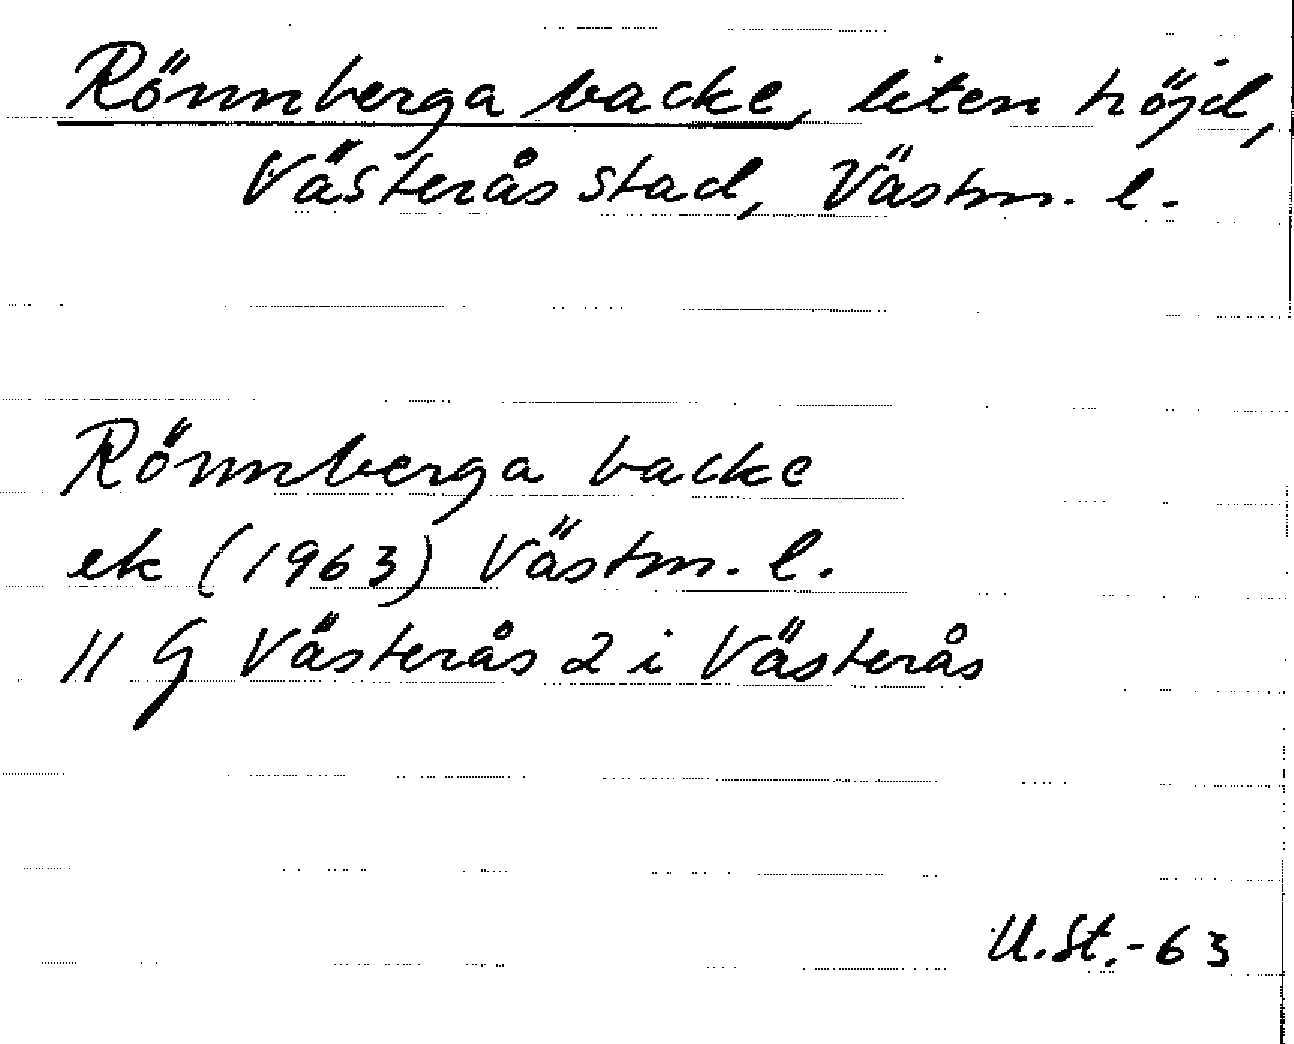 Rönnberga backe, liten höjd,
Västerås stad, Västm. l.
Rönnberga backe
ek (1963) Västm. l.
11 G Västerås 2 i Västerås
U.St.-63